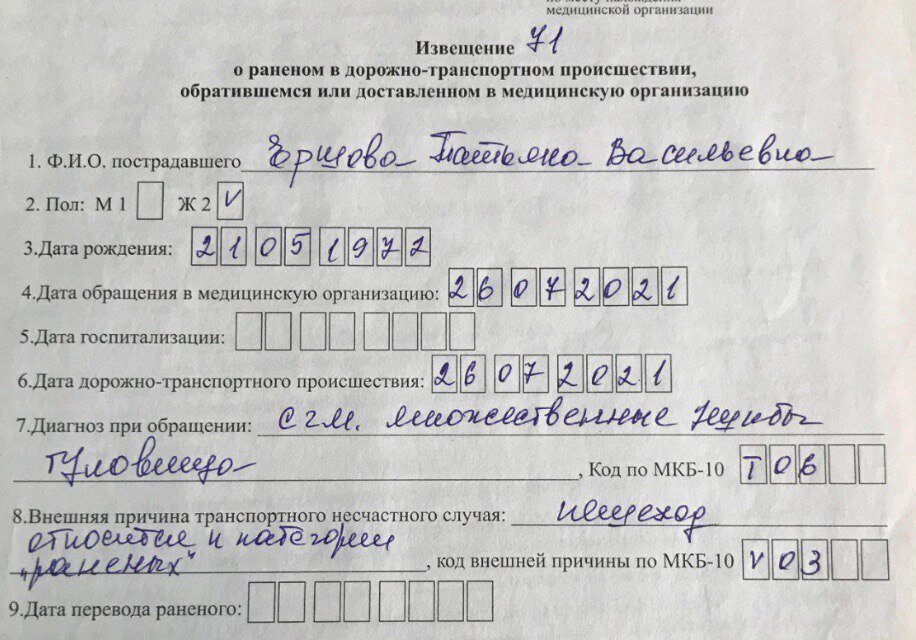 медицинской организации
Извещение 71
о раненом в дорожно-транспортном происшествии,
обратившемся или доставленном в медицинскую организацию
1. Ф.И.О. пострадавшего Ершова Татьяна Васильевна
2. Пол: М 1 Ж 2 V
3.Дата рождения: 21 05 1972
4.Дата обращения в медицинскую организацию: 26 07 2021
5.Дата госпитализации:
6.Дата дорожно-транспортного происшествия: 26 07 2021
7.Диагноз при обращении: СГМ. множественные ушибы
туловища, Код по МКБ-10 T06
8.Внешняя причина транспортного несчастного случая: пешеход
относится к категории
"раненых", код внешней причины по МКБ-10 V03
9.Дата перевода раненого: